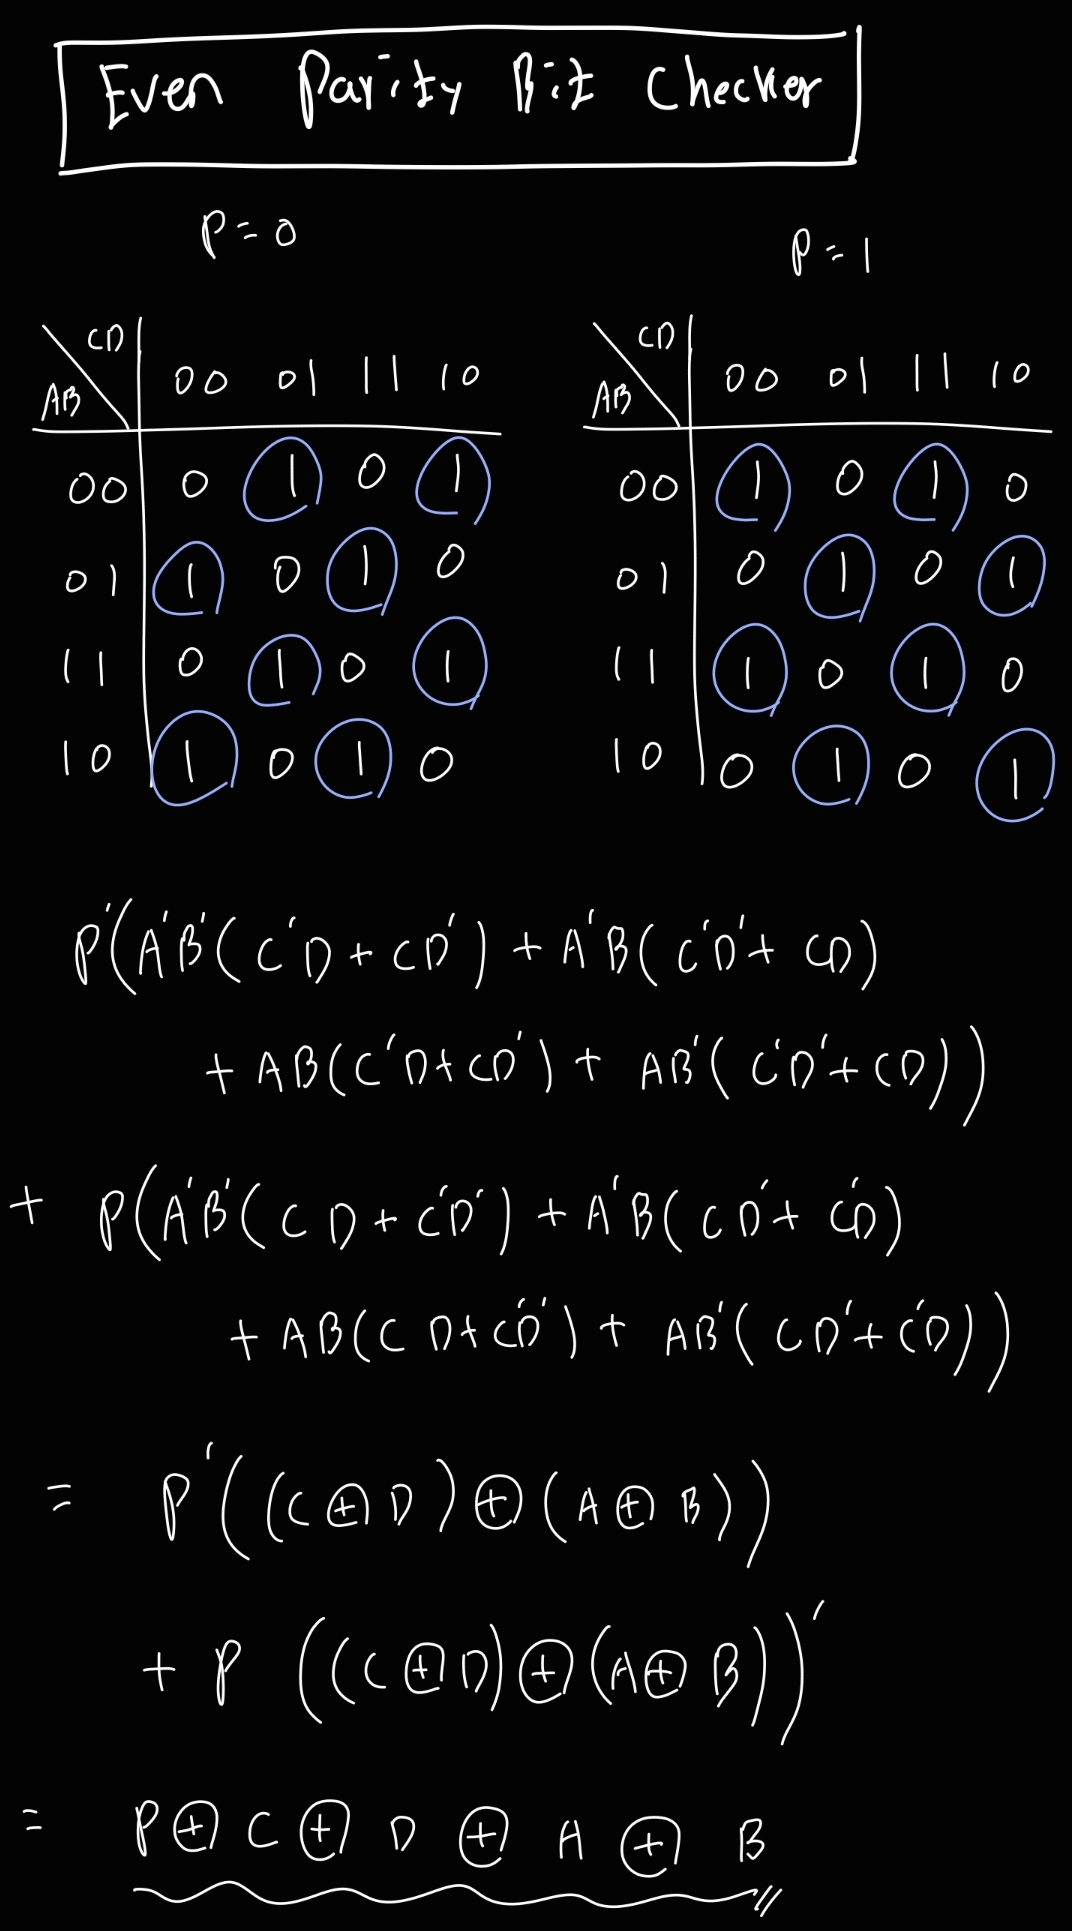 Even Parity Bit Checker
P=0
P=1
CD
AB
00 01 11 10
00 0 1 0 1
01 1 0 1 0
11 0 1 0 1
10 1 0 1 0
CD
AB
00 01 11 10
00 1 0 1 0
01 0 1 0 1
11 1 0 1 0
10 0 1 0 1
P'(A'B'(C'D+CD')+A'B(C'D'+CD)
+AB(C'D+CD')+AB'(C'D'+CD))
+ P(A'B'(CD+C'D')+A'B(CD'+C'D)
+AB(CD+C'D')+AB'(CD'+C'D))
= P'((C⊕D)⊕(A⊕B))
+P((C⊕D)⊕(A⊕B))'
= P⊕C⊕D⊕A⊕B